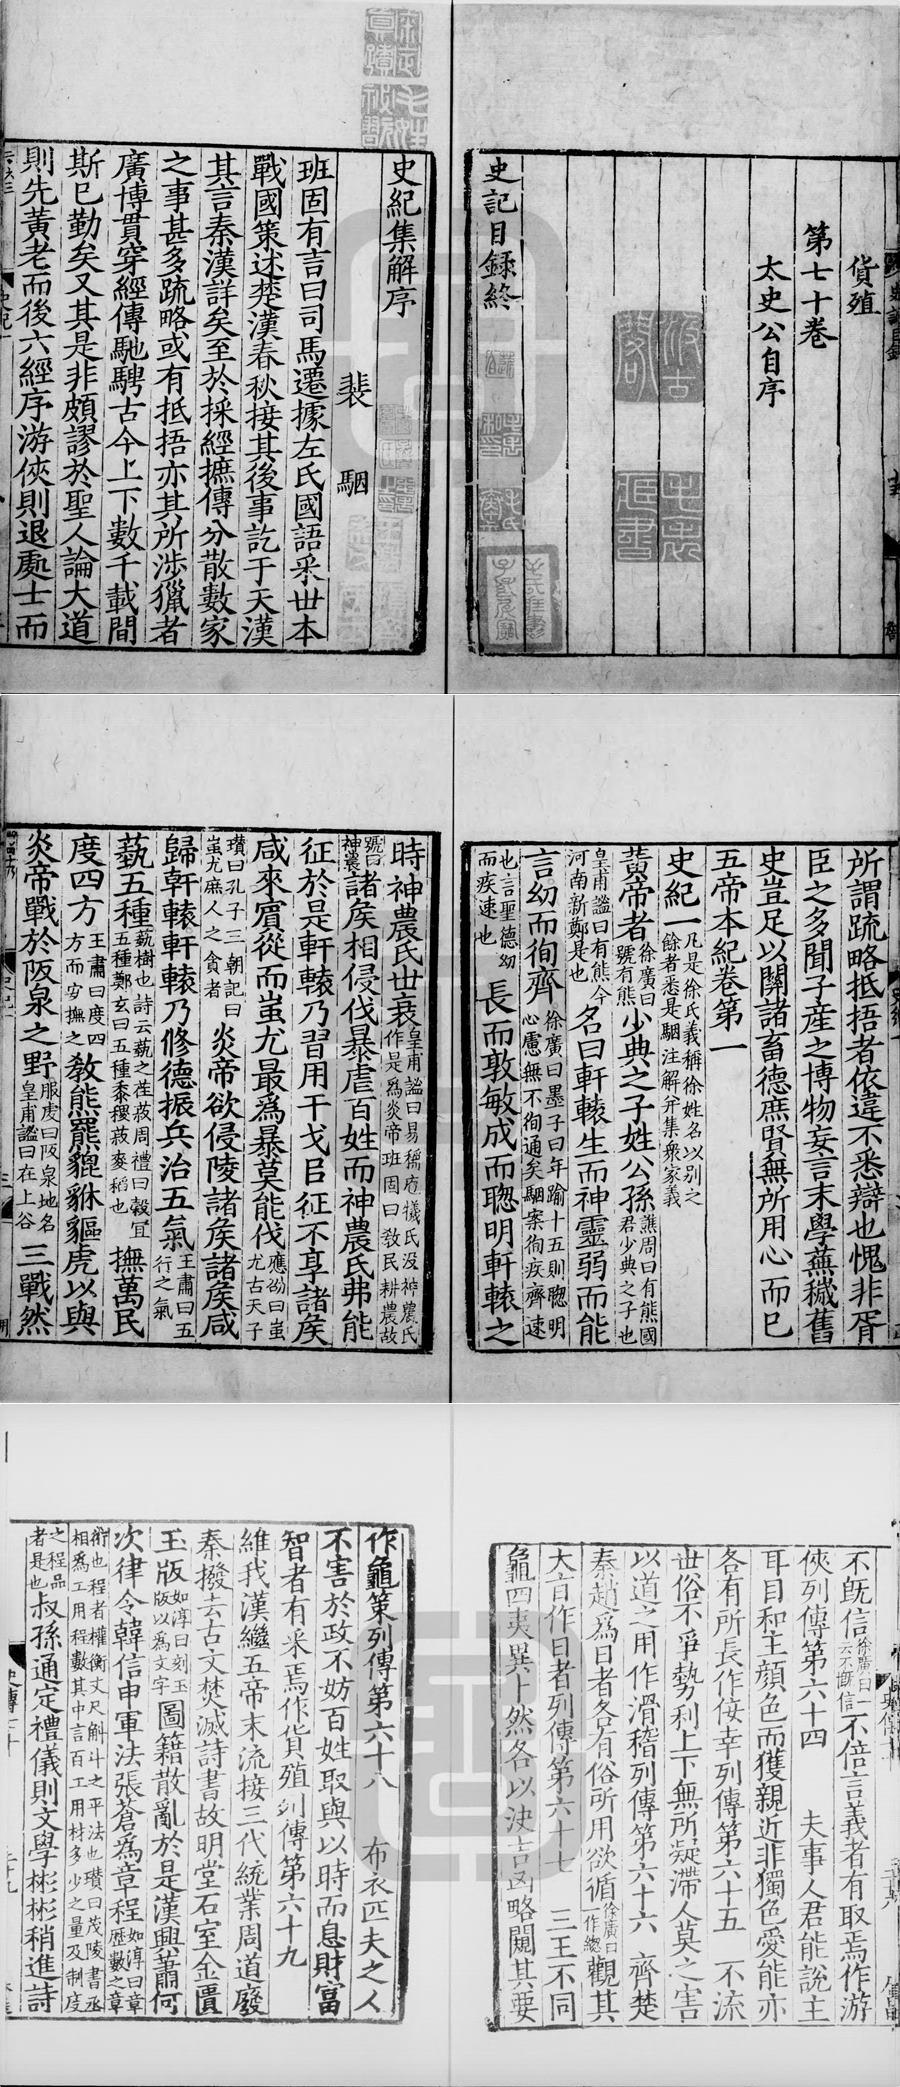 貨殖
第七十卷
太史公自序
史記目録終
史紀集解序
裴 駰
班固有言曰司馬遷據左氏國語采丗本
戰國策述楚漢春秋接其後事訖于天漢
其言秦漢詳矣至於採經摭傳分散數家
之事甚多疏略或有抵捂亦其所涉獵者
廣博貫穿經傳馳騁古今上下數千載間
斯已勤矣又其是非頗謬於聖人論大道
則先黃老而後六經序游俠則退處士而
所謂疏略抵捂者依違不悉辯也愧非胥
臣之多聞子產之博物妄言末學蕪穢舊
史豈足以關諸畜德庶賢無所用心而已
五帝本紀卷第一
史紀一
凡是徐氏義稱徐姓名以別之
餘者悉是駰注解并集衆家義
黃帝者
徐廣曰
號有熊
少典之子姓公孫
譙周曰有熊國
君少典之子也
皇甫謐曰有熊今
河南新鄭是也
名曰軒轅生而神靈弱而能
言幼而徇齊
徐廣曰墨子曰年踰十五則聦明
心慮無不徇通矣駰案徇疾齊速
也言聖德幼
而疾速也
長而敦敏成而聦明軒轅之
時神農氏丗衰
皇甫謐曰易稱庖犧氏没神農氏
作是爲炎帝班固曰敎民耕農故
號曰
神農
諸矦相侵伐暴虐百姓而神農氏弗能
征於是軒轅乃習用干戈㠯征不享諸矦
咸來賓從而蚩尤最爲暴莫能伐
應劭曰蚩
尤古天子
瓚曰孔子三朝記曰
蚩尤庶人之貪者
炎帝欲侵陵諸矦諸矦咸
歸軒轅軒轅乃修德振兵治五氣
王肅曰五
行之氣
蓺五種
蓺樹也詩云蓺之荏菽周禮曰穀宜
五種鄭玄曰五種黍稷菽麥稻也
撫萬民
度四方
王肅曰度四
方而安撫之
敎熊羆貔貅貙虎以與
炎帝戰於阪泉之野
服虔曰阪泉地名
皇甫謐曰在上谷
三戰然
不旣信
徐廣曰一
云不慨信
不倍言義者有取焉作游
俠列傳第六十四 夫事人君能說主
耳目和主顏色而獲親近非獨色愛能亦
各有所長作佞幸列傳第六十五 不流
丗俗不爭勢利上下無所凝滯人莫之害
以道之用作滑稽列傳第六十六 齊楚
秦趙爲日者各有俗所用欲循
徐廣曰
一作總
觀其
大旨作日者列傳第六十七 三王不同
龜四夷異卜然各以決吉凶略闚其要
作龜策列傳第六十八 布衣匹夫之人
不害於政不妨百姓取與以時而息財富
智者有采焉作貨殖列傳第六十九
維我漢繼五帝末流接三代統業周道廢
秦撥去古文焚滅詩書故明堂石室金匱
玉版
如淳曰刻玉
版以爲文字
圖籍散亂於是漢興蕭何
次律令韓信申軍法張蒼爲章程
如淳曰章
歷數之章
術也程者權衡丈尺斛斗之平法也瓚曰茂陵書丞
相爲工用程數其中言百工用材多少之量及制度
之程品
者是也
叔孫通定禮儀則文學彬彬稍進詩